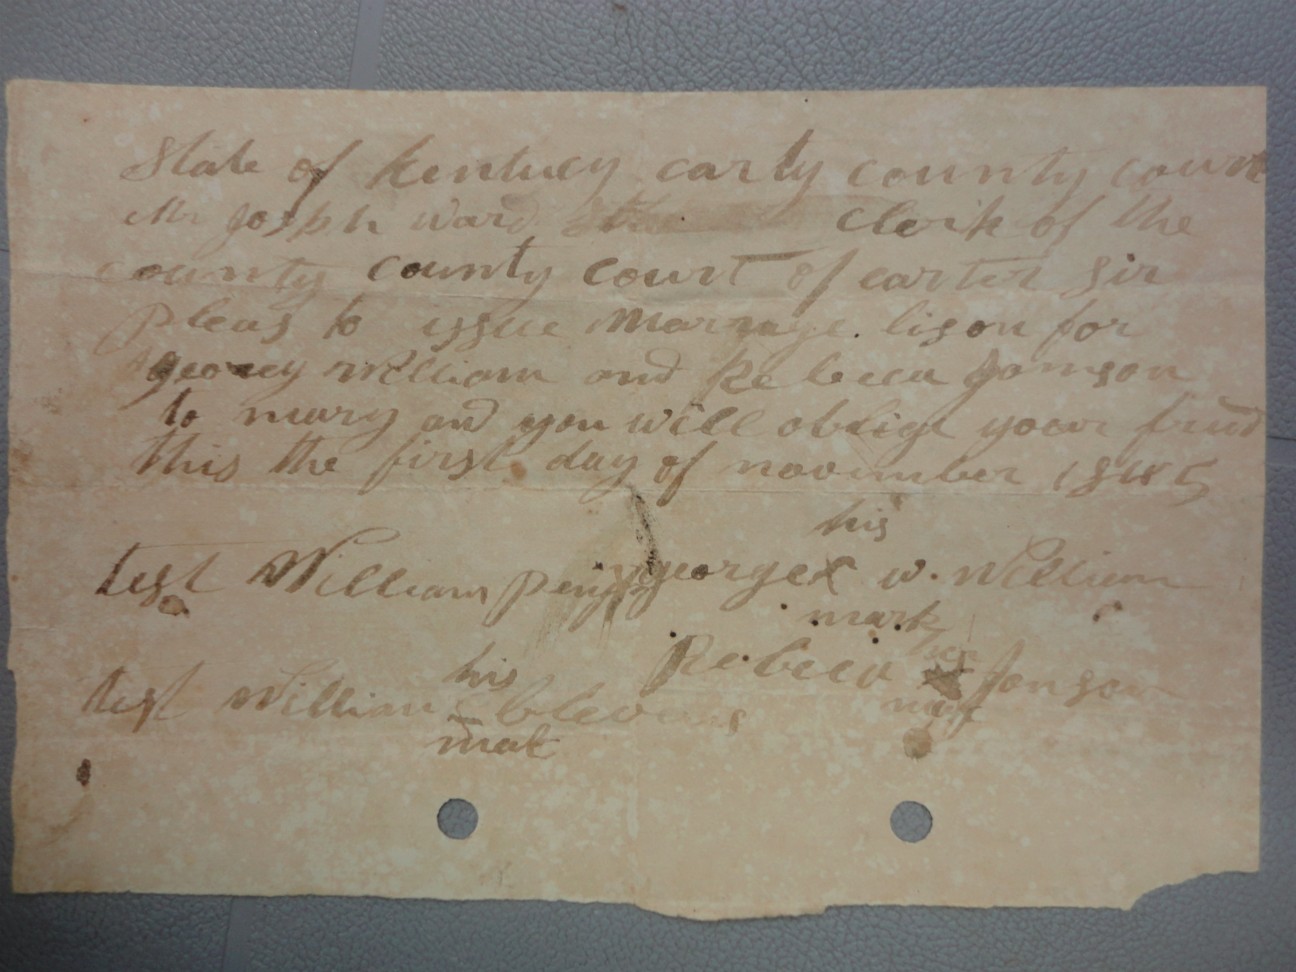 State of Kentucy carty county court
Mr Josph Ward clerk of the
county county court of carter Sir
Pleas to issue Marrage lison for
georey William and Rebecca Jomson
to mary and you will oblige your frind
this the first day of november 1845
his
test William george X w. William
mark
his Rebecca her Jonson
test William blevins mark
mak